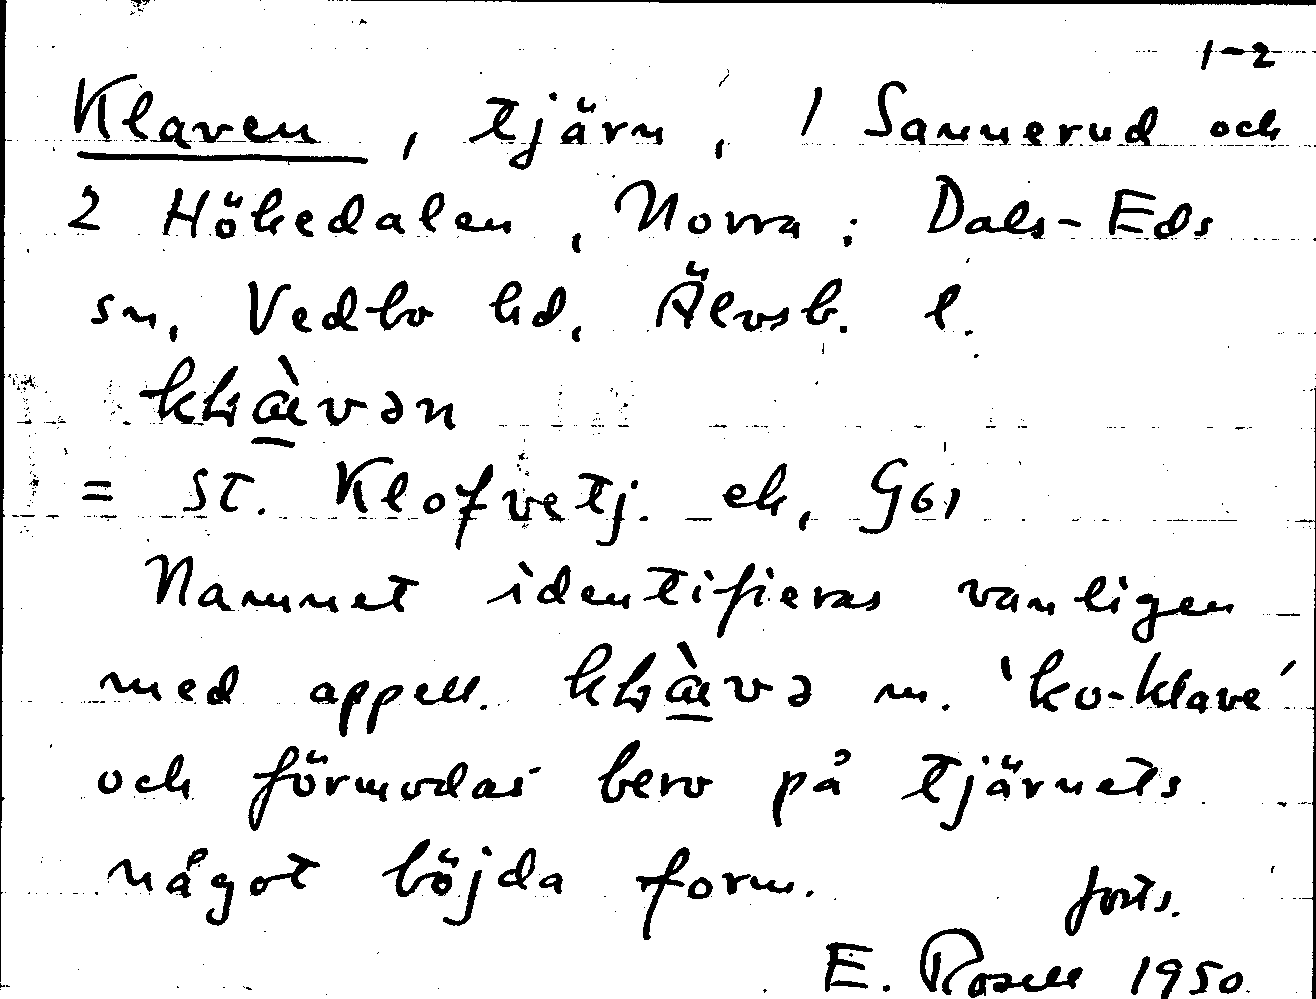 1-2
Klaven, tjärn, 1 Sannerud och
2 Hökedalen, Norra; Dals-Eds
sn, Vedbo hd, Älvsb. l.
klæ̀vən
= St. Klofvetj. ek, G61
Namnet identifieras vanligen
med appell. klæ̀və m. 'ko-klave'
och förmodas bero på tjärnets
något böjda form. forts.
E. Rosell 1950